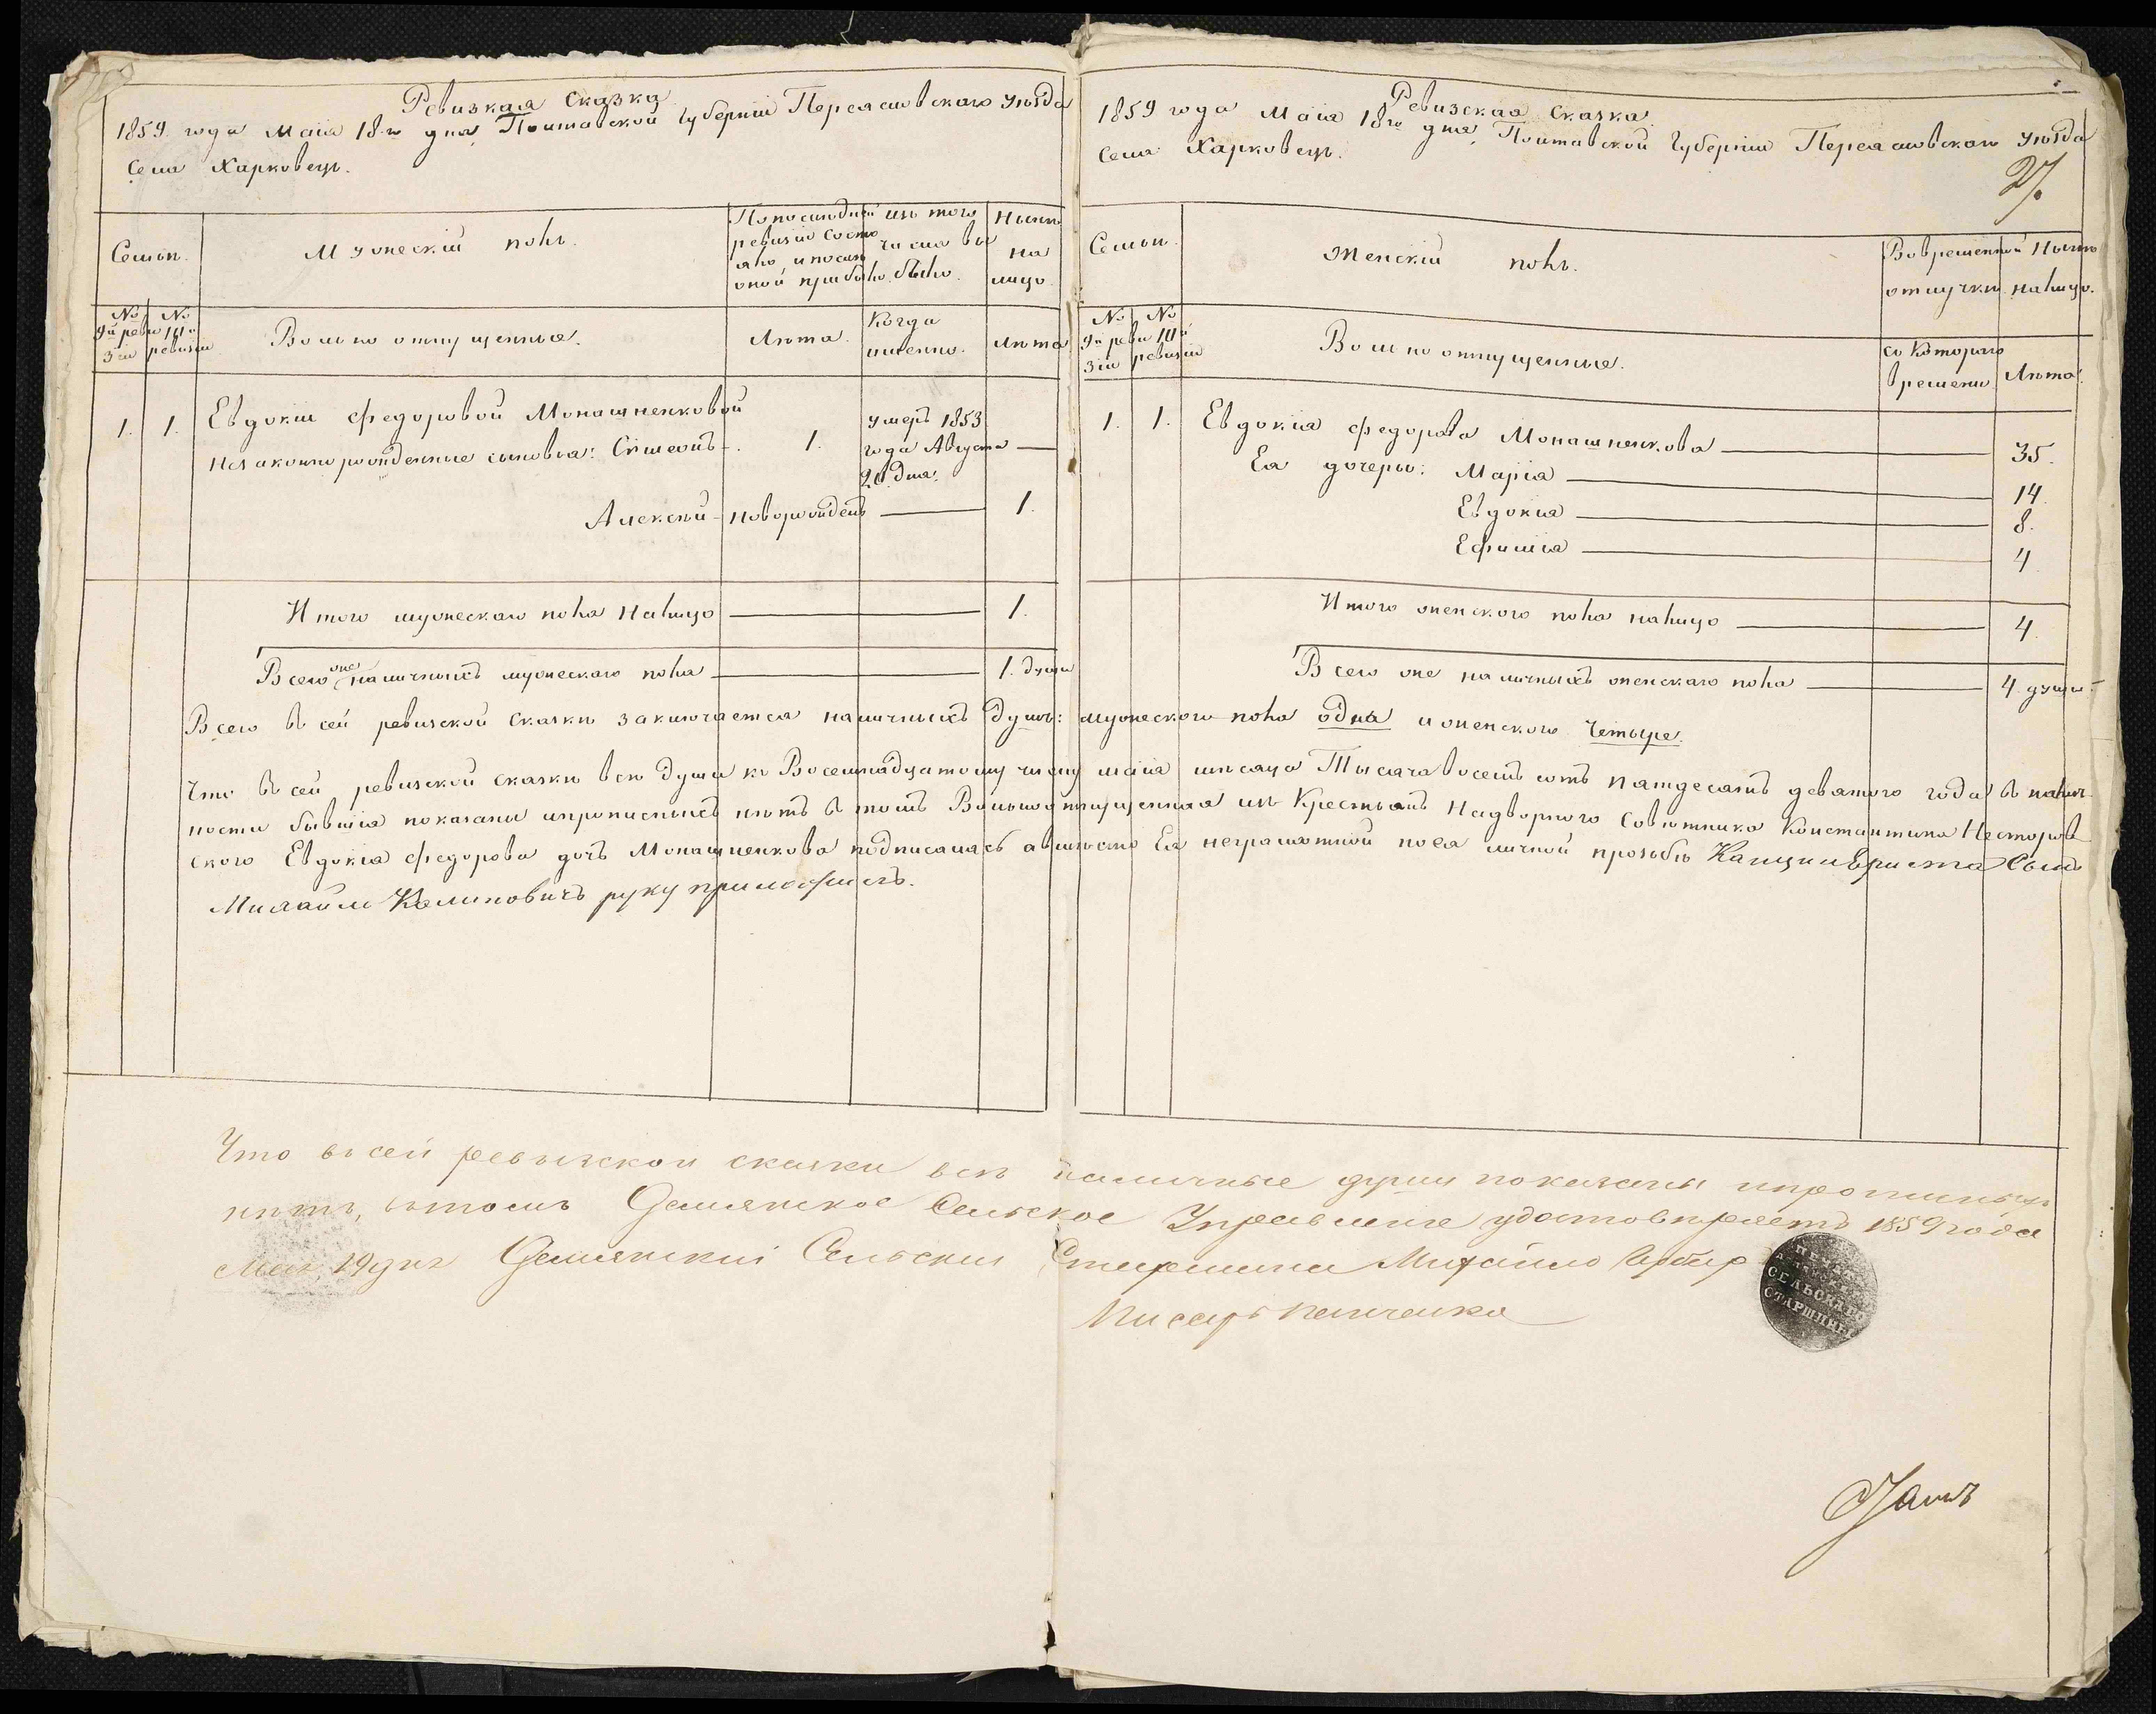 Ревизкая Сказка
1859. года Маія 18-го дня, Полтавской Губерніи Переяславского Уѣзда
Села Харковецъ.
Семьи.
Мужескій полъ.
По последней ревизіи состояло и после оной прибыло.
Изъ того числа выбыло.
Нынѣ на лицо.
№ 9й ревизіи
№ 10й ревизіи
Вольноотпущенныя.
Лѣта.
Когда именно.
Лѣта
1. 1. Евдокіи Федоровой Монашненковой
незаконнорожденные сыновья: Симеонъ - 1. умеръ 1853 года Августа 20 дня. —
Алексѣй - новорожденъ — 1.
Итого мужескаго пола налицо — 1.
Всего же наличныхъ мужескаго пола — 1. душа
Ревизская Сказка.
1859 года Маія 18го дня, Полтавской Губерніи Переяславскаго Уѣзда
Села Харковецъ.
27.
Семьи.
Женскій полъ.
Во временной отлучкѣ.
Нынѣ налицо.
№ 9й ревизіи
№ 10й ревизіи
Вольноотпущенные.
Съ котораго времени
Лѣта.
1. 1. Евдокія Федорова Монашненкова — 35.
Ея дочеры: Марія — 14.
Евдокия — 8.
Ефимія — 4
Итого женского пола налицо — 4.
Всего же наличныхъ женскаго пола — 4. души.
Всего въ сей ревизской сказки заключается наличныхъ душъ: мужеского пола одна и женского четыре.
Что въ сей ревизской сказки всѣ души къ Восемнадцатому числу маіа мѣсяца Тысяча восемъ сотъ пятдесятъ девятого года въ налич
ности бывшіа показаны и прописныхъ нѣтъ въ томъ Вольноотпущенная изъ Крестьянъ Надворного Совѣтника Константина Несторов
ского Евдокіа Федорова дочь Монашненкова подписалась а вместо Ея неграмотной по ея личной прозьбѣ Канцилѣриста Сынъ
Михаилъ Калиновичъ руку приложилъ.
Что въ сей ревызской сказки всѣ наличные души показаны и прописныхъ
нѣтъ, въ томъ Демянское Сельское Управление удостовѣряетъ 1859 года
Мая 19 дня Демянский Сельский Старшина Михайло
Писарь
СЕЛЬСКАГО
СТАРШИНЫ